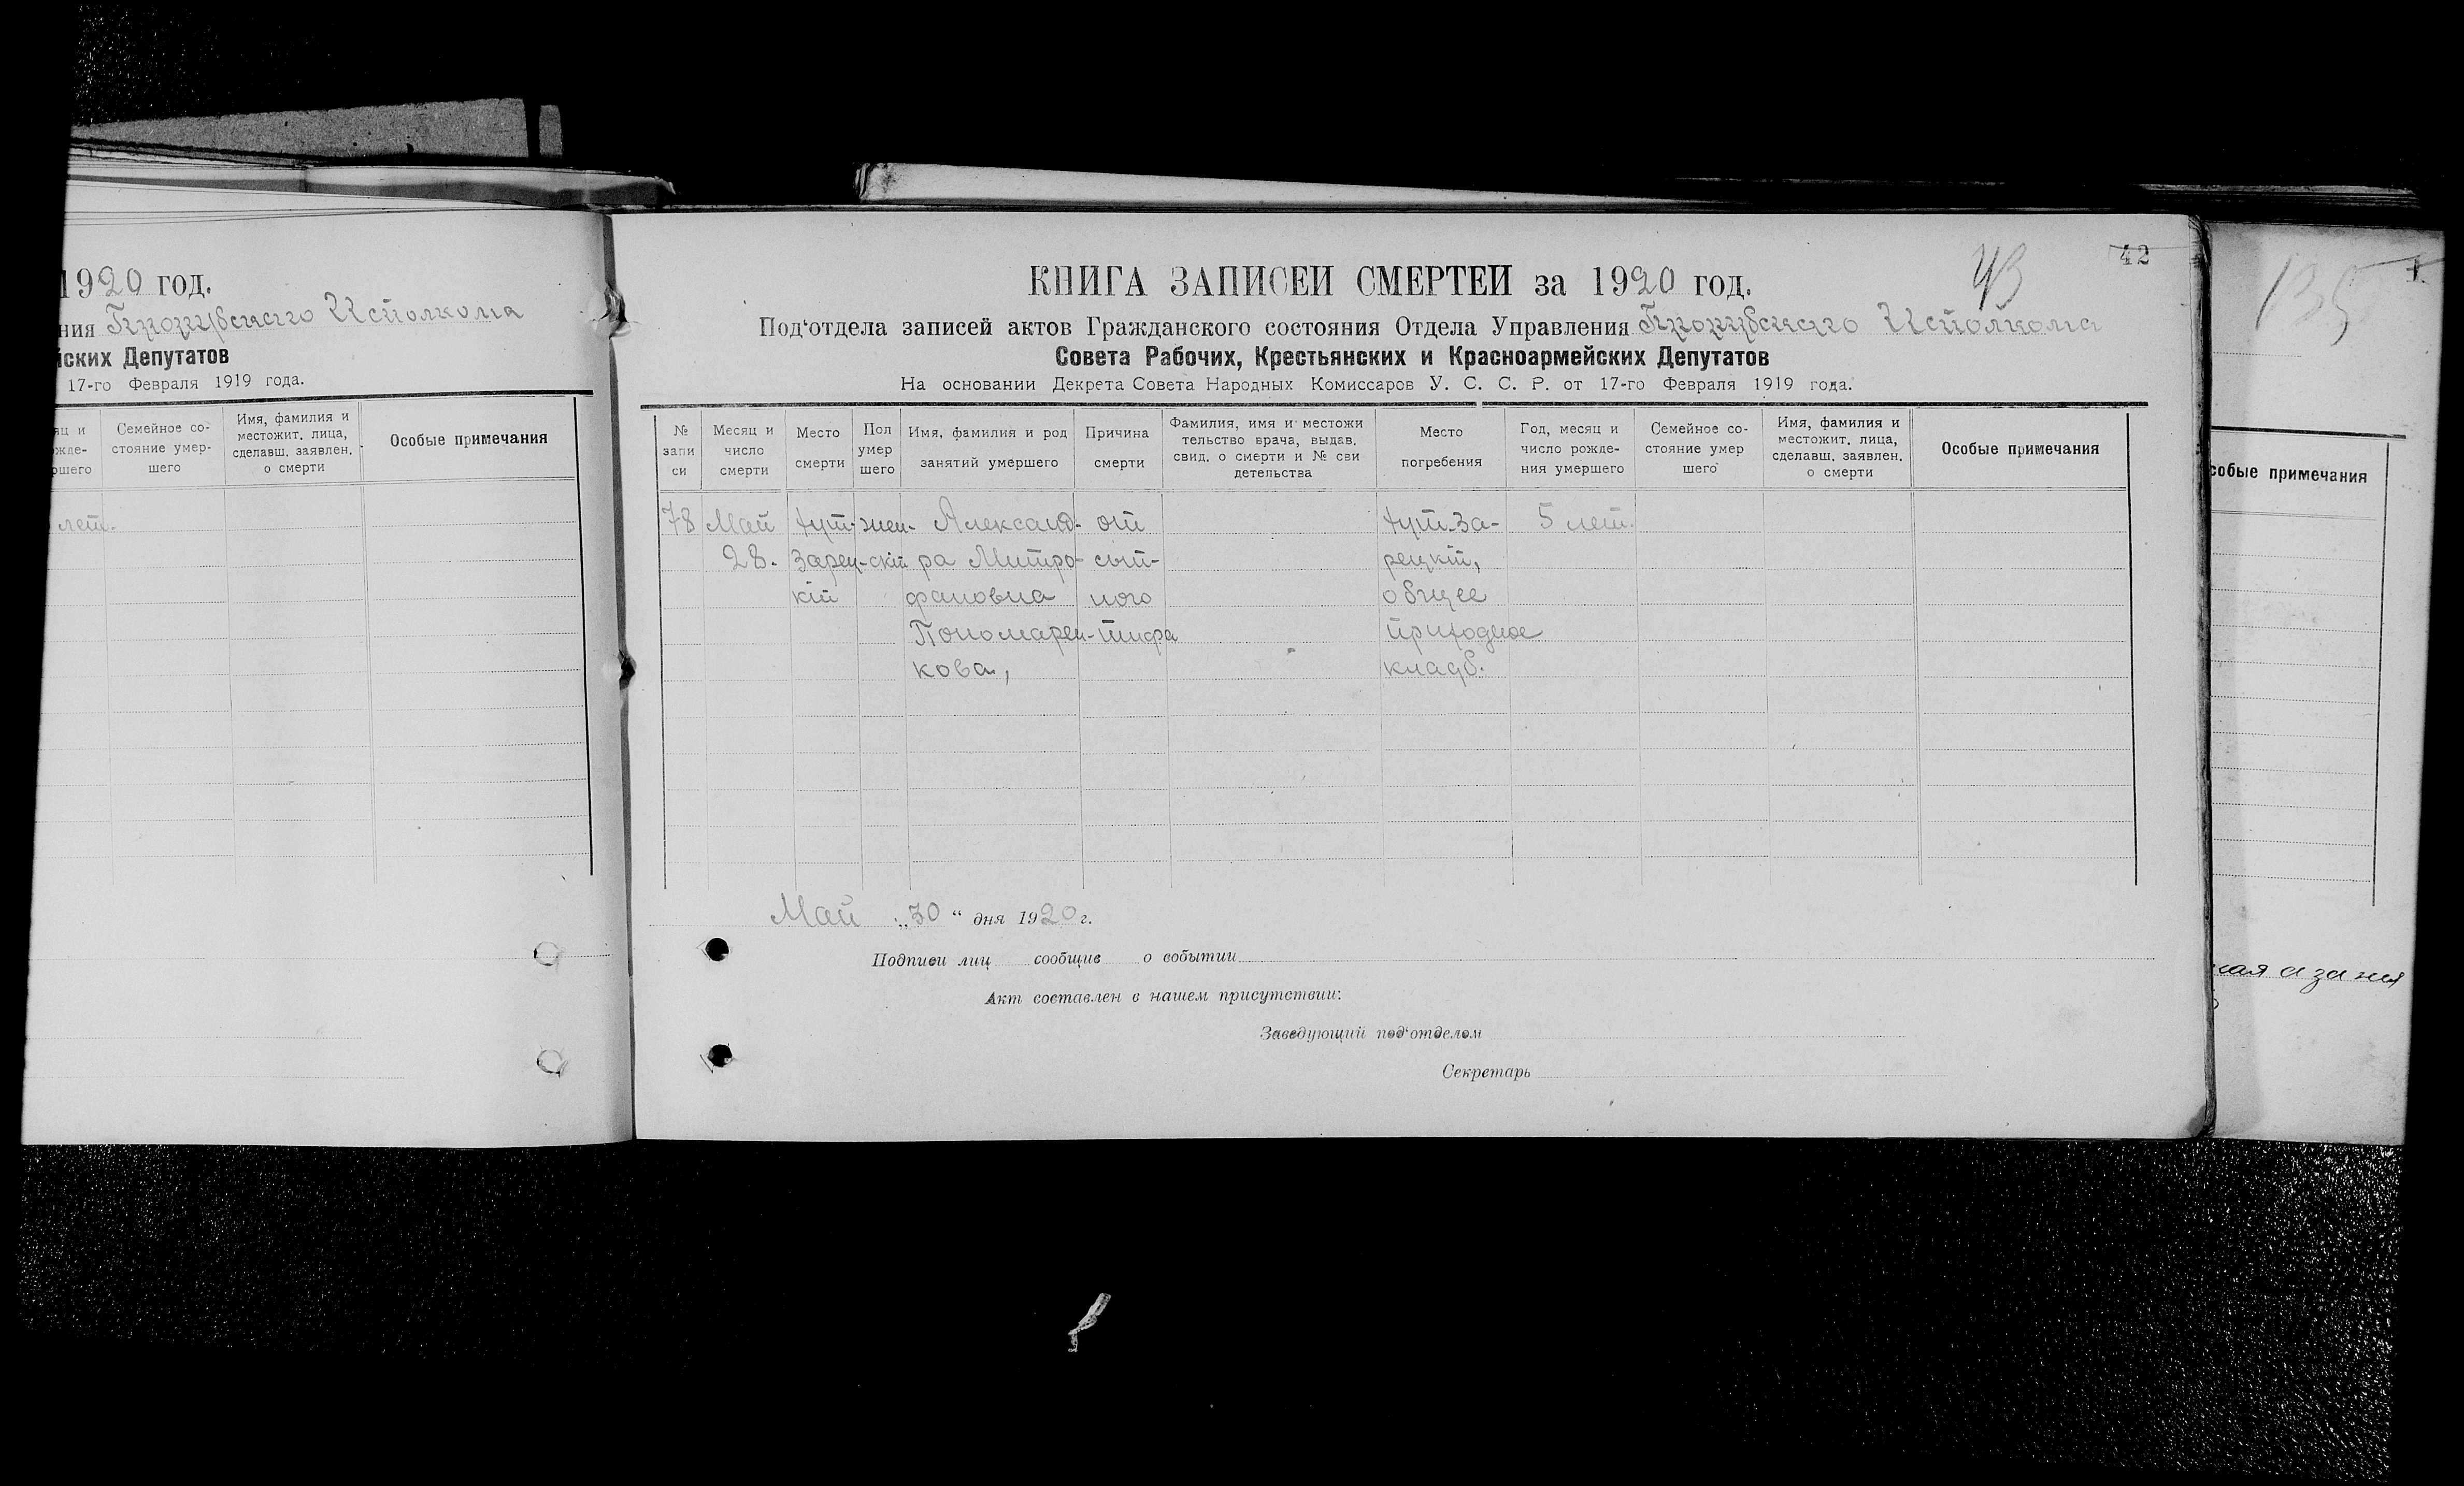 1920 год.
ния Исполкома
йских Депутатов
17-го Февраля 1919 года.
Семейное со-
стояние умер-
шего
Имя, фамилия и
местожит. лица,
сделавш. заявлен.
о смерти
Особые примечания
лет.
42
43
КНИГА ЗАПИСЕЙ СМЕРТЕЙ за 1920 год.
Под‘отдела записей актов Гражданского состояния Отдела Управления Исполкома
Совета Рабочих, Крестьянских и Красноармейских Депутатов
На основании Декрета Совета Народных Комиссаров У. С. С. Р. от 17-го Февраля 1919 года.
№
запи
си
Месяц и
число
смерти
Место
смерти
Пол
умер
шего
Имя, фамилия и род
занятий умершего
Причина
смерти
Фамилия, имя и местожи
тельство врача, выдав.
свид. о смерти и № сви
детельства
Место
погребения
Год, месяц и
число рожде-
ния умершего
Семейное со-
стояние умер
шего
Имя, фамилия и
местожит. лица,
сделавш. заявлен.
о смерти
Особые примечания
78
Май
28.
хут.
Зарец-
кій
жен-
скій
Александ-
ра Митро-
фановна
Пономарен-
кова,
от
сып-
ного
тифа
хут. За-
рецкій,
общее
приходное
кладб.
5 лет.
Май „30“ дня 1920 г.
Подписи лиц сообщив о событии
Акт составлен в нашем присутствии:
Заведующий под‘отделом
Секретарь
135
1.
собые примечания